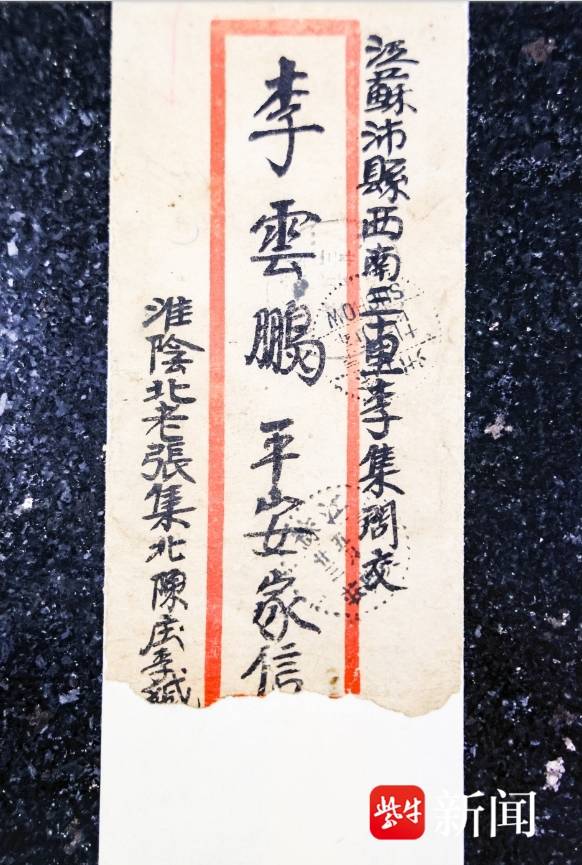 江蘇沛縣西南三重李集閣交
李雲鵬 平安家信
淮陰北老張集北陳庄李緘
紫牛新闻